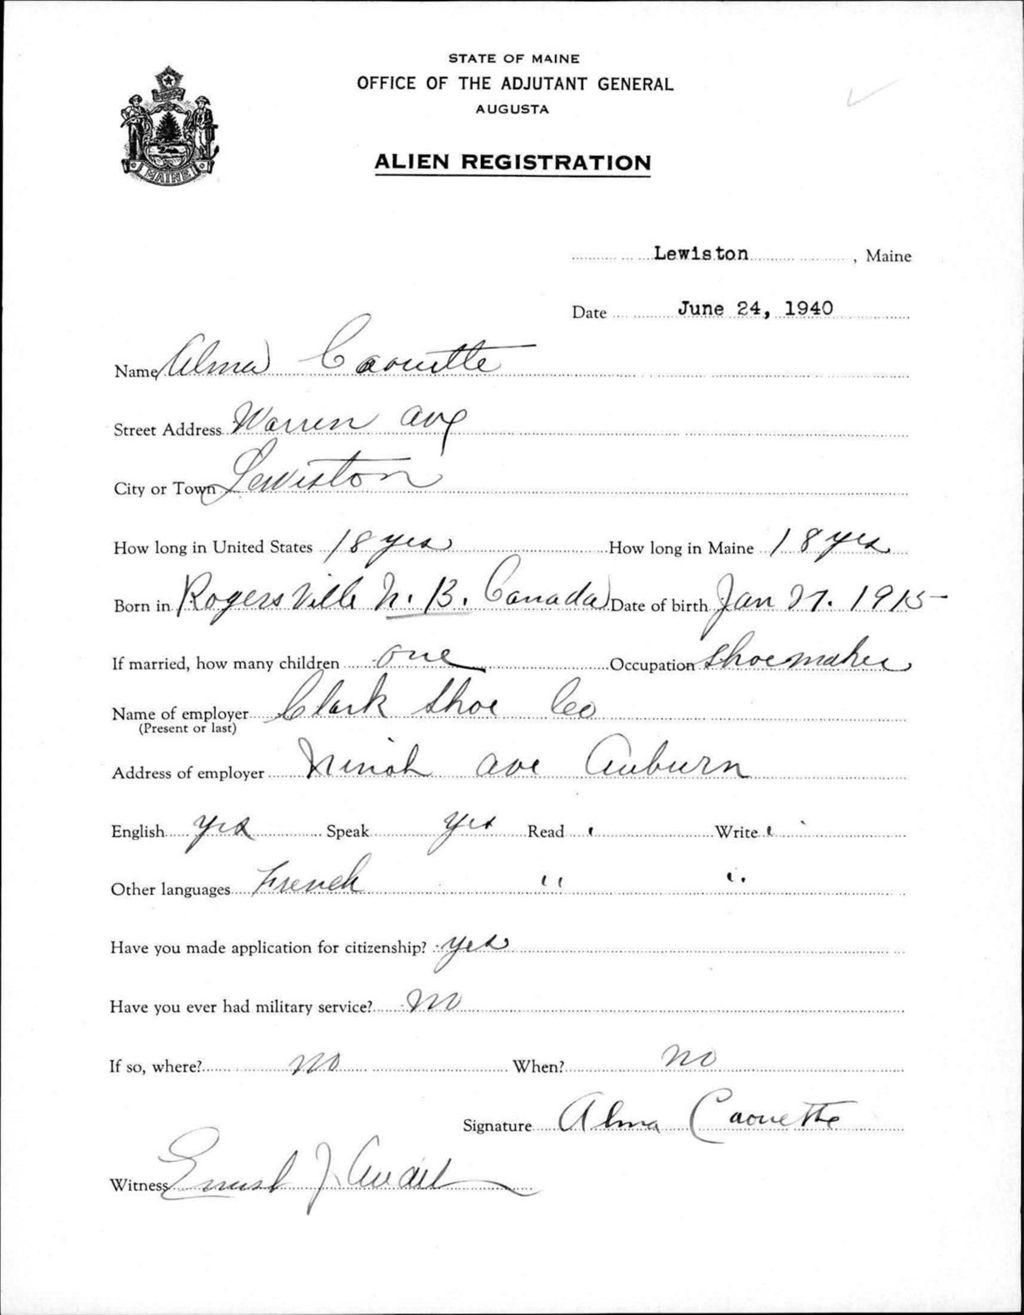 STATE OF MAINE
OFFICE OF THE ADJUTANT GENERAL
AUGUSTA
ALIEN REGISTRATION
MAINE
Lewiston, Maine
Date June 24, 1940
Name Alma Caouette
Street Address Warren Ave
City or Town Lewiston
How long in United States 18 yrs How long in Maine 18 yrs
Born in Rogersville N. B. Canada Date of birth Jan 27. 1915
If married, how many children one Occupation Shoemaker
Name of employer Clark Shoe Co
(Present or last)
Address of employer ave Auburn
English yes Speak yes Read " Write "
Other languages French " "
Have you made application for citizenship? yes
Have you ever had military service? no
If so, where? no When? no
Signature Alma Caouette
Witness Ernest J.